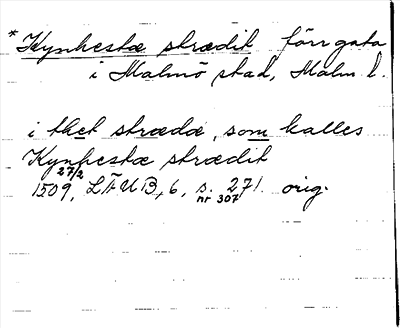 *Kynhestæ strædit förr gata
i Malmö stad, Malm l.
i thet strædæ, som kalles
Kynhestæ strædit
27/2
1509, LÄUB, 6, s. 271. orig.
nr 307